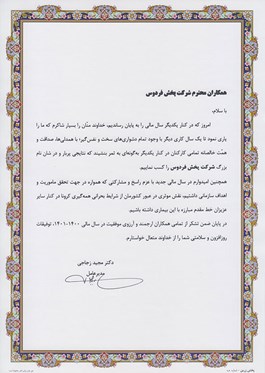 همکاران محترم شرکت پخش فردوس
با سلام،
امروز که در کنار یکدیگر سال مالی را به پایان رساندیم، خداوند منّان را بسیار شاکرم که ما را
یاری نمود تا یک سال کاری دیگر با وجود تمام دشواری‌های سخت و نفس‌گیر؛ با همدلی‌ها، صداقت و
همّت خالصانه تمامی کارکنان در کنار یکدیگر به‌گونه‌ای به ثمر بنشینند که نتایجی پربار و در شان نام
بزرگ شرکت پخش فردوس را کسب نماییم.
همچنین امیدوارم در سال مالی جدید با عزم راسخ و مشارکتی که همواره در جهت تحقق ماموریت و
اهداف سازمانی داشتیم، نقش موثری در عبور کشورمان از شرایط بحرانی همه‌گیری کرونا در کنار سایر
عزیزان خط مقدم مبارزه با این بیماری داشته باشیم.
در پایان ضمن تشکر از تمامی همکاران ارجمند و آرزوی موفقیت در سال مالی ۱۴۰۰-۱۴۰۱، توفیقات
روزافزون و سلامتی شما را از خداوند متعال خواستارم.
دکتر مجید زجاجی
مدیرعامل